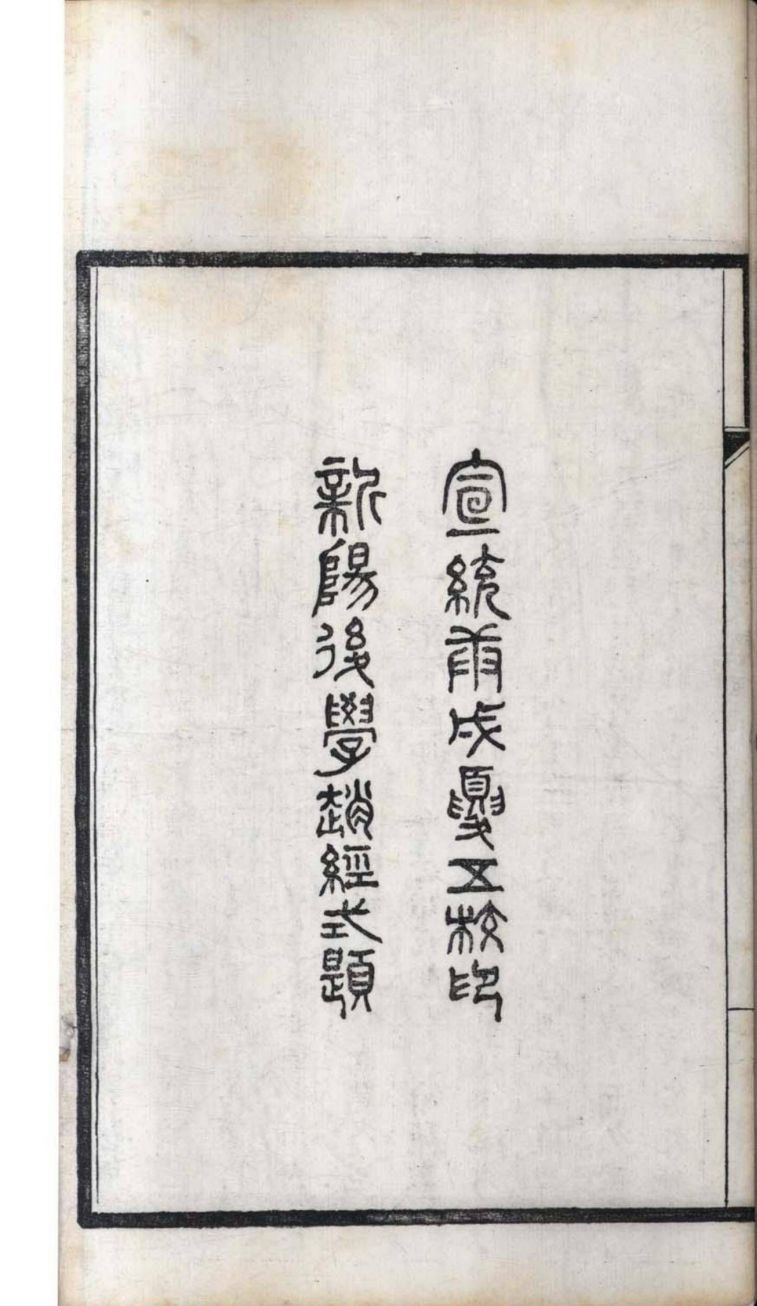 宣統庚戌夏五校印
新陽後學趙經式題